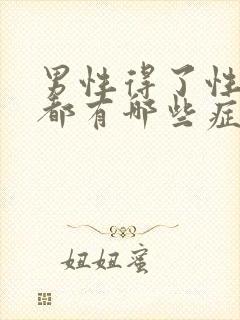 男性得了性
都有哪些症
妞妞蜜